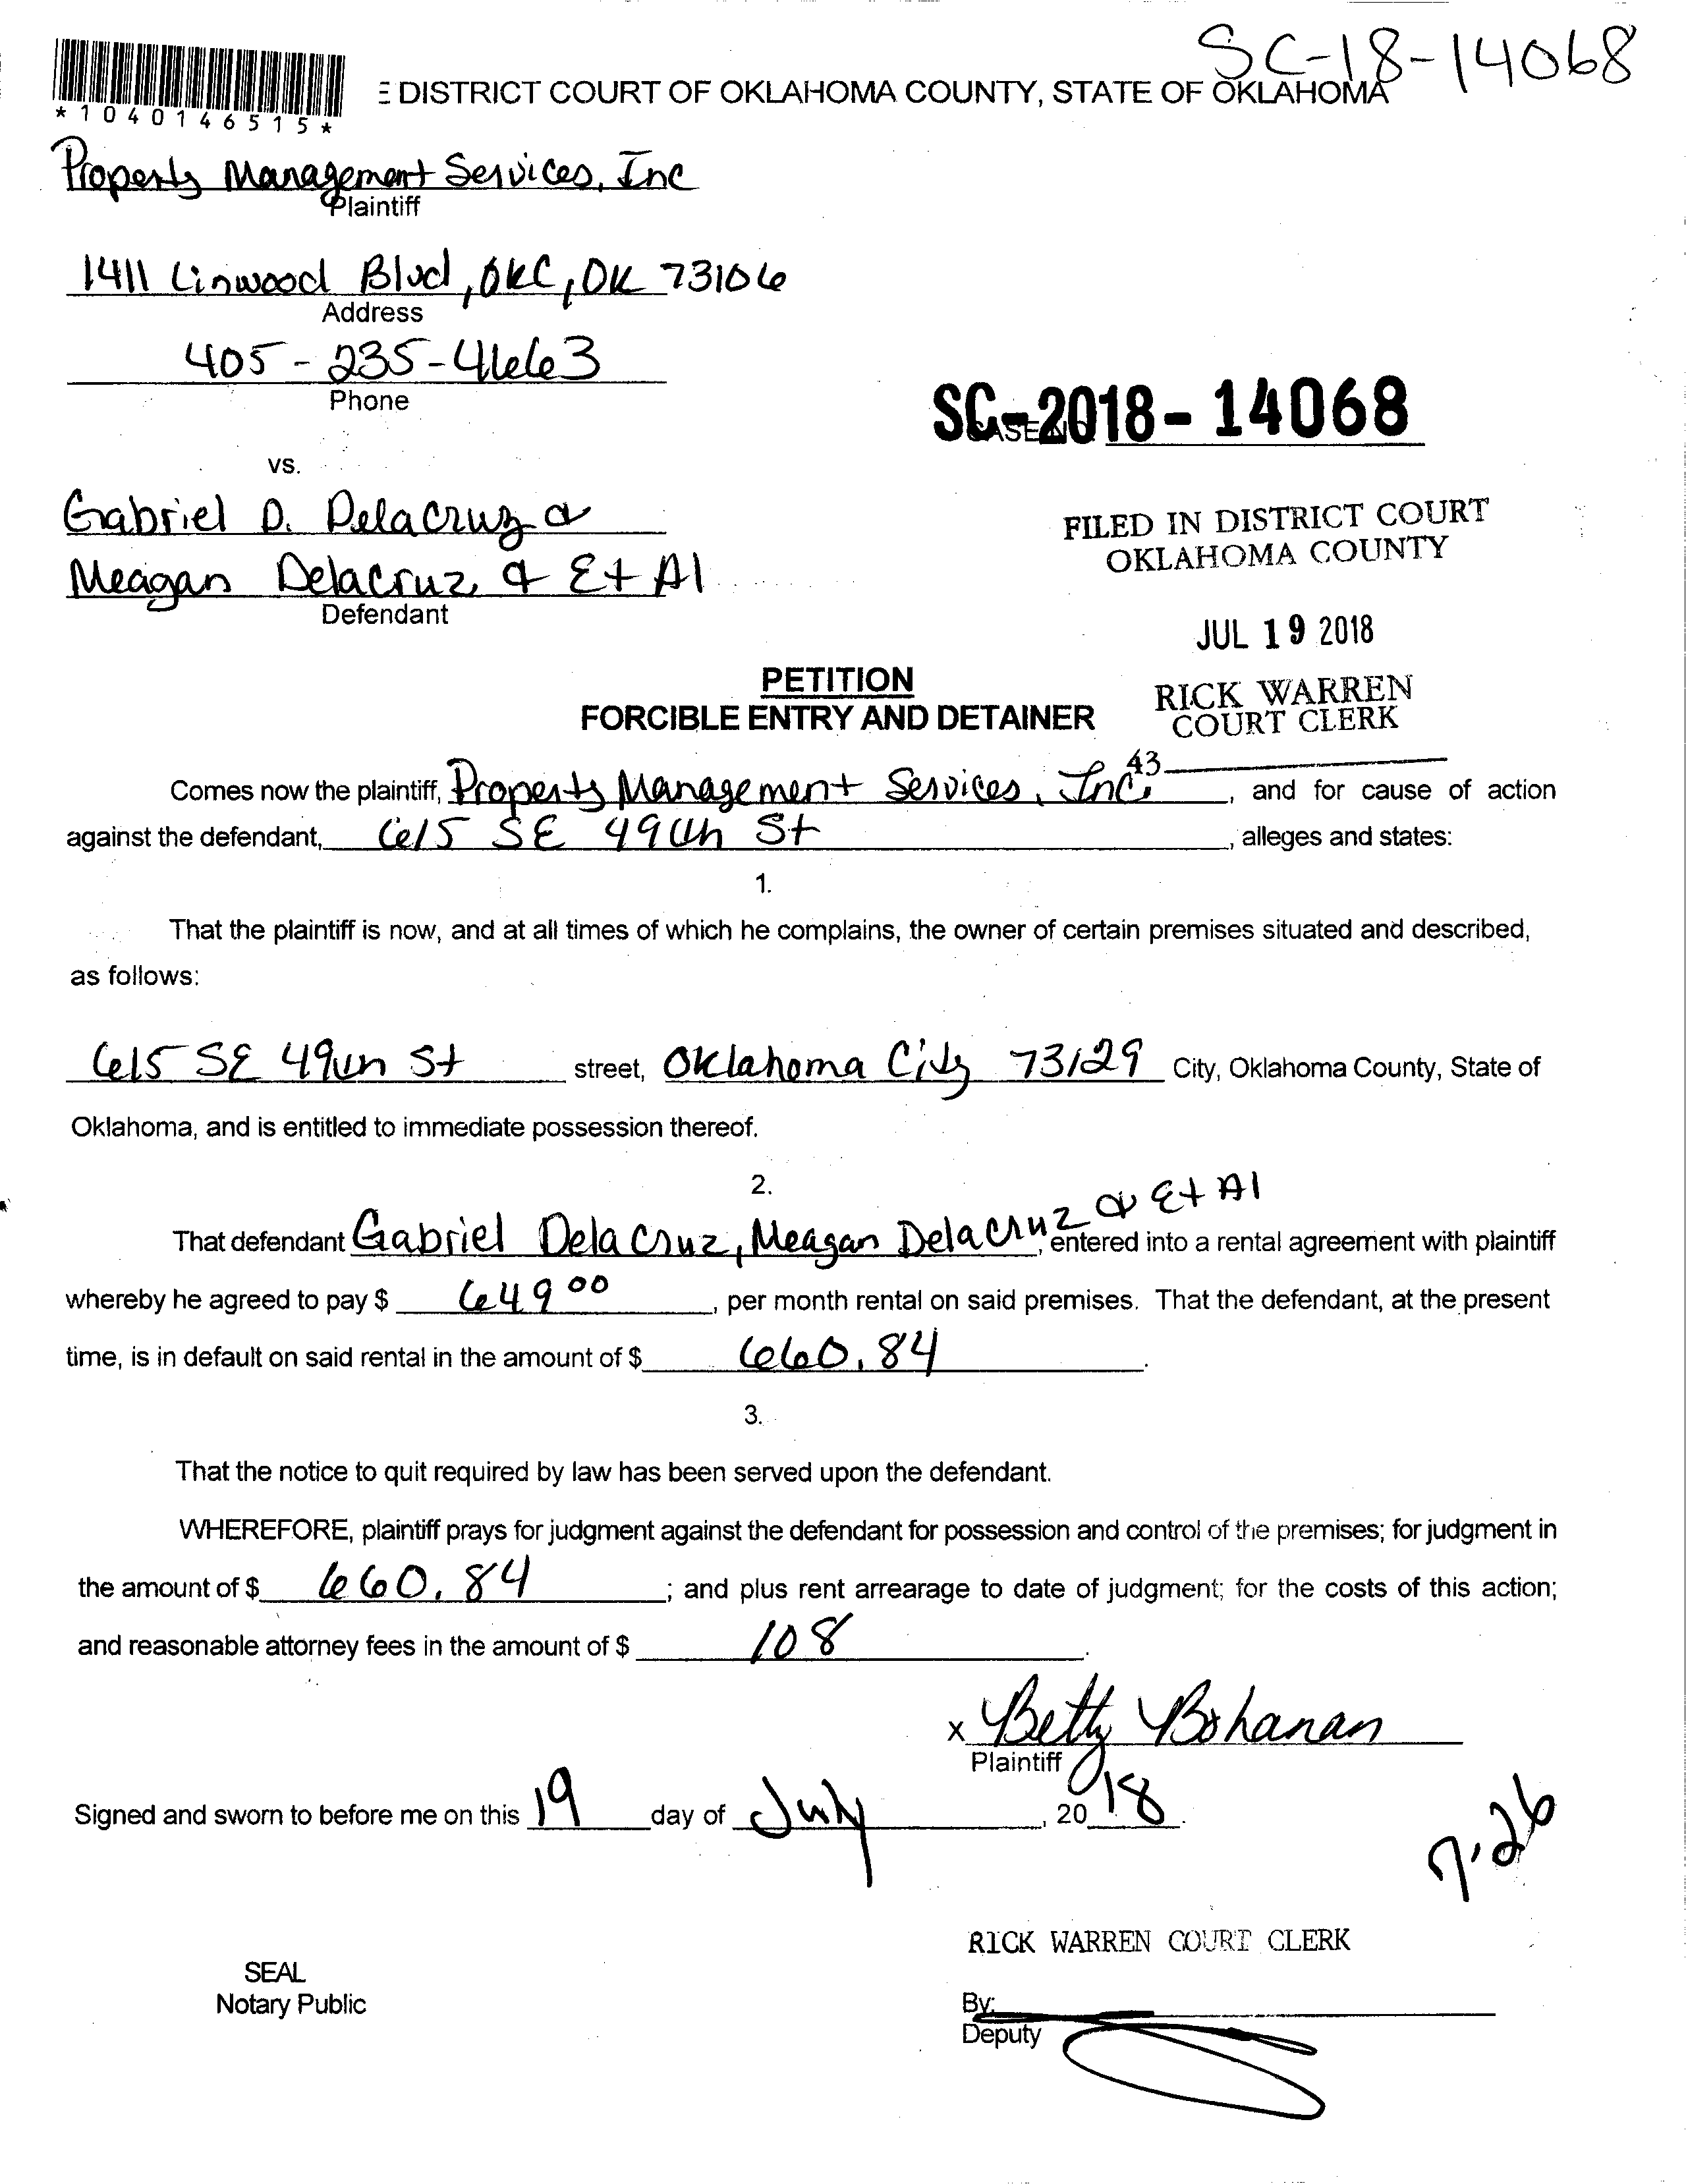 SC-18-14068
E DISTRICT COURT OF OKLAHOMA COUNTY, STATE OF OKLAHOMA
*1040146515*
Property Management Services, Inc
Plaintiff
1411 Linwood Blvd, OKC, OK 73106
Address
405-235-4663
Phone
SC-2018-14068
CASE NO.
vs.
Gabriel D. Delacruz &
Meagan Delacruz & Et Al
Defendant
FILED IN DISTRICT COURT
OKLAHOMA COUNTY
JUL 19 2018
RICK WARREN
COURT CLERK
43
PETITION
FORCIBLE ENTRY AND DETAINER
Comes now the plaintiff, Property Management Services, Inc. , and for cause of action
against the defendant, 615 SE 49th St , alleges and states:
1.
That the plaintiff is now, and at all times of which he complains, the owner of certain premises situated and described,
as follows:
615 SE 49th St street, Oklahoma City 73129 City, Oklahoma County, State of
Oklahoma, and is entitled to immediate possession thereof.
2.
That defendant Gabriel Delacruz, Meagan Delacruz & Et Al, entered into a rental agreement with plaintiff
whereby he agreed to pay $ 649 00 , per month rental on said premises. That the defendant, at the present
time, is in default on said rental in the amount of $ 660.84 .
3.
That the notice to quit required by law has been served upon the defendant.
WHEREFORE, plaintiff prays for judgment against the defendant for possession and control of the premises; for judgment in
the amount of $ 660.84 ; and plus rent arrearage to date of judgment; for the costs of this action;
and reasonable attorney fees in the amount of $ 108 .
x Betty Bohanan
Plaintiff
Signed and sworn to before me on this 19 day of July , 20 18 .
7.26
RICK WARREN COURT CLERK
SEAL
Notary Public
By:
Deputy